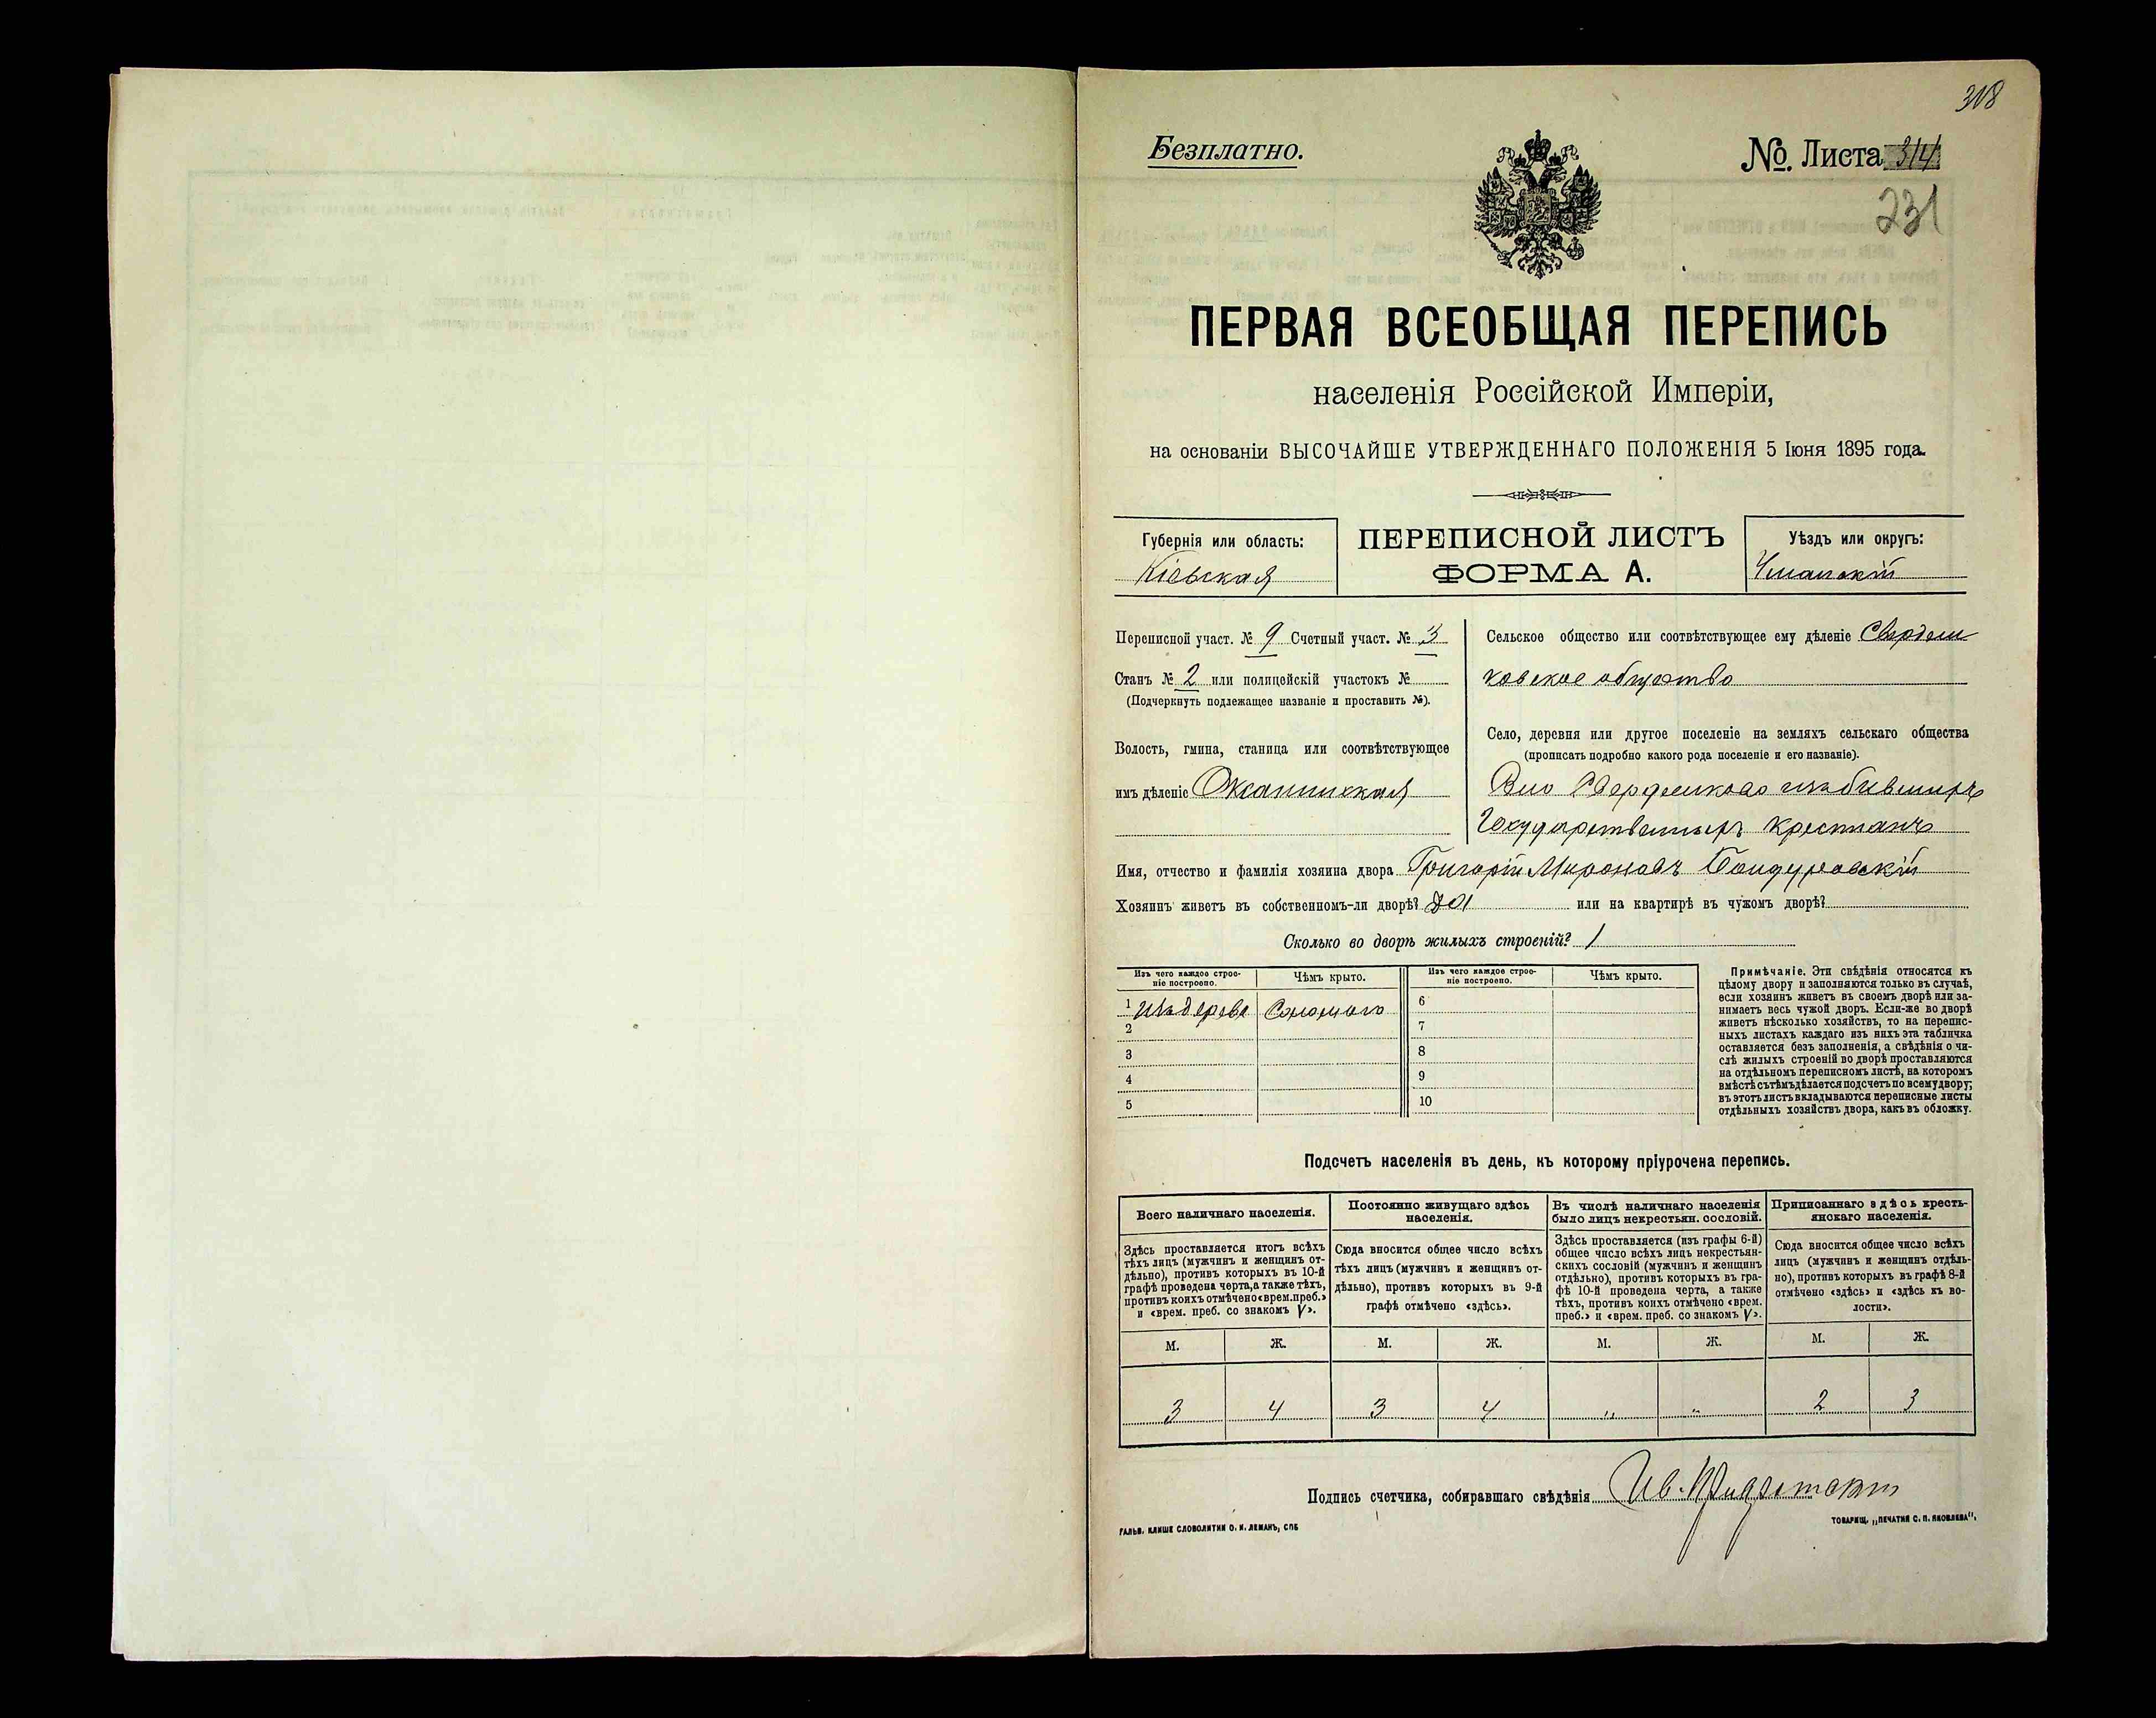 318
Безплатно.
№ Листа 314
231
ПЕРВАЯ ВСЕОБЩАЯ ПЕРЕПИСЬ
населенія Россійской Имперіи,
на основаніи ВЫСОЧАЙШЕ УТВЕРЖДЕННАГО ПОЛОЖЕНІЯ 5 Іюня 1895 года.
Губернія или область:
Кіевская
ПЕРЕПИСНОЙ ЛИСТЪ
ФОРМА А.
Уѣздъ или округъ:
Уманскій
Переписной участ. № 9 Счетный участ. № 3
Станъ № 2 или полицейскій участокъ №
(Подчеркнуть подлежащее названіе и проставить №).
Волость, гмина, станица или соотвѣтствующее
имъ дѣленіе Оксанинская
Сельское общество или соотвѣтствующее ему дѣленіе Свердли
ковское общество
Село, деревня или другое поселеніе на земляхъ сельскаго общества
(прописать подробно какого рода поселеніе и его названіе).
Свердликово изъ бывшихъ
Государственныхъ крестьянъ
Имя, отчество и фамилія хозяина двора Григорій Мироновъ Бондуровскій
Хозяинъ живетъ въ собственномъ-ли дворѣ? да или на квартирѣ въ чужомъ дворѣ?
Сколько во дворѣ жилыхъ строеній? 1
Изъ чего каждое строе-
ніе построено.
Чѣмъ крыто.
1 Изъ дерева Соломою
2
3
4
5
Изъ чего каждое строе-
ніе построено.
Чѣмъ крыто.
6
7
8
9
10
Примѣчаніе. Эти свѣдѣнія относятся къ
цѣлому двору и заполняются только въ случаѣ,
если хозяинъ живетъ въ своемъ дворѣ или за-
нимаетъ весь чужой дворъ. Если-же во дворѣ
живетъ нѣсколько хозяйствъ, то на перепис-
ныхъ листахъ каждаго изъ нихъ эта табличка
оставляется безъ заполненія, а свѣдѣнія о чи-
слѣ жилыхъ строеній во дворѣ проставляются
на отдѣльномъ переписномъ листѣ, на которомъ
вмѣстѣ съ тѣмъ дѣлается подсчетъ по всему двору;
въ этотъ листъ вкладываются переписные листы
отдѣльныхъ хозяйствъ двора, какъ въ обложку.
Подсчетъ населенія въ день, къ которому пріурочена перепись.
Всего наличнаго населенія.
Здѣсь проставляется итогъ всѣхъ
тѣхъ лицъ (мужчинъ и женщинъ от-
дѣльно), противъ которыхъ въ 10-й
графѣ проведена черта, а также тѣхъ,
противъ коихъ отмѣчено «врем. преб.»
и «врем. преб. со знакомъ V».
М. Ж.
3 4
Постоянно живущаго здѣсь
населенія.
Сюда вносится общее число всѣхъ
тѣхъ лицъ (мужчинъ и женщинъ от-
дѣльно), противъ которыхъ въ 9-й
графѣ отмѣчено «здѣсь».
М. Ж.
3 4
Въ числѣ наличнаго населенія
было лицъ некрестьян. сословій.
Здѣсь проставляется (изъ графы 6-й)
общее число всѣхъ лицъ некрестьян-
скихъ сословій (мужчинъ и женщинъ
отдѣльно), противъ которыхъ въ гра-
фѣ 10-й проведена черта, а также
тѣхъ, противъ коихъ отмѣчено «врем.
преб.» и «врем. преб. со знакомъ V».
М. Ж.
" "
Приписаннаго здѣсь кресть-
янскаго населенія.
Сюда вносится общее число всѣхъ
лицъ (мужчинъ и женщинъ отдѣль-
но), противъ которыхъ въ графѣ 8-й
отмѣчено «здѣсь» и «здѣсь къ во-
лости».
М. Ж.
2 3
Подпись счетчика, собиравшаго свѣдѣнія Ив.
ГАЛЬВ. КЛИШЕ СЛОВОЛИТНИ О. И. ЛЕМАНЪ, СПБ
ТОВАРИЩ. „ПЕЧАТНЯ С. П. ЯКОВЛЕВА".